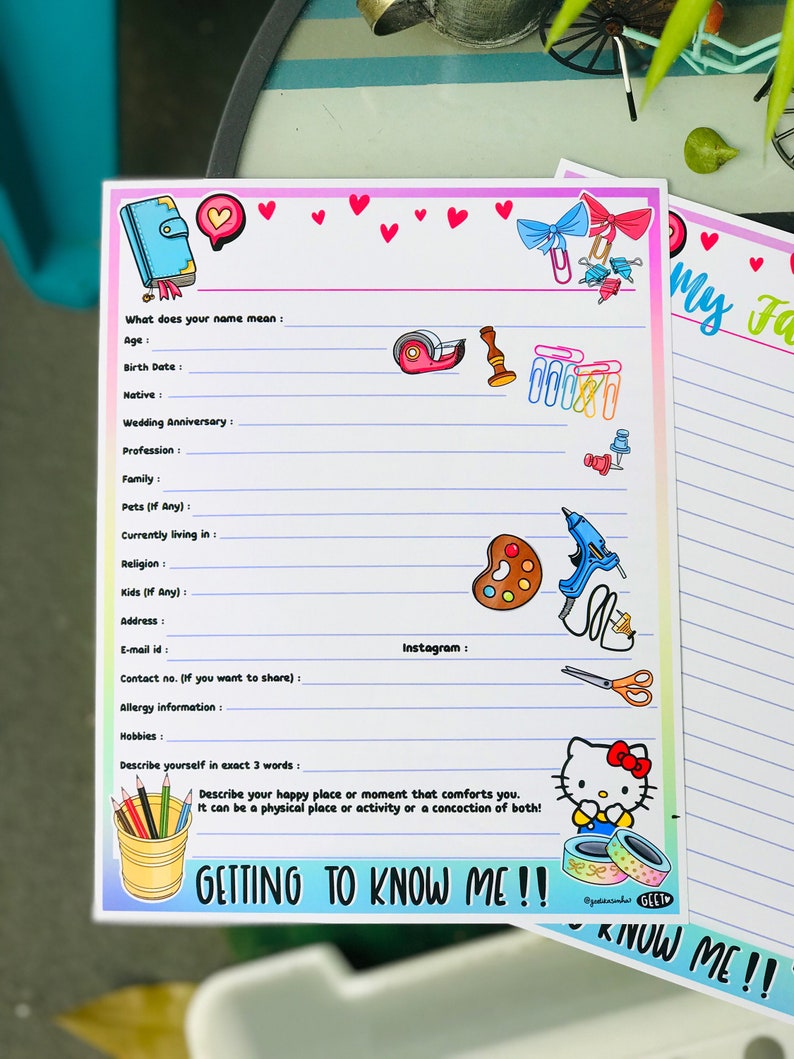 What does your name mean :
Age :
Birth Date :
Native :
Wedding Anniversary :
Profession :
Family :
Pets (If Any) :
Currently living in :
Religion :
Kids (If Any) :
Address :
E-mail id :
Instagram :
Contact no. (If you want to share) :
Allergy information :
Hobbies :
Describe yourself in exact 3 words :
Describe your happy place or moment that comforts you.
It can be a physical place or activity or a concoction of both!
GETTING TO KNOW ME!!
@geetikasinha
GEET
My Fa
TO KNOW ME!!